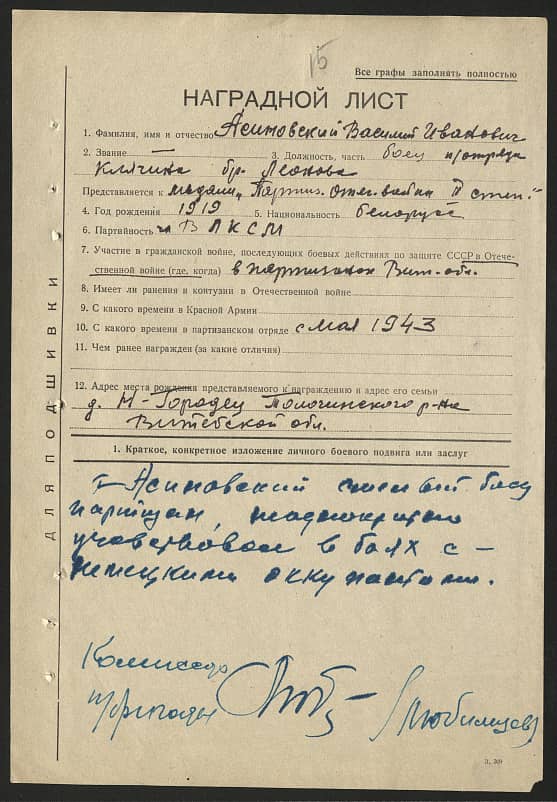 15
Все графы заполнять полностью
НАГРАДНОЙ ЛИСТ
1. Фамилия, имя и отчество Асиновский Василий Иванович
2. Звание — 3. Должность, часть боец п/отряда
Клячина бр. Леонова
Представляется к медали „Партиз. Отеч. войны II степ."
4. Год рождения 1919 5. Национальность белорус
6. Партийность чл ВЛКСМ
7. Участие в гражданской войне, последующих боевых действиях по защите СССР в Отече-
ственной войне (где, когда) в партизанах Вит. обл.
8. Имеет ли ранения и контузии в Отечественной войне
9. С какого времени в Красной Армии
10. С какого времени в партизанском отряде с Мая 1943
11. Чем ранее награжден (за какие отличия)
12. Адрес места рождения представляемого к награждению и адрес его семьи
д. Н-Городец Толочинского р-на
Витебской обл.
1. Краткое, конкретное изложение личного боевого подвига или заслуг
Асиновский смелый боец
партизан, неоднократно
участвовал в боях с —
немецкими оккупантами.
Комиссар
п/бригады
ДЛЯ ПОДШИВКИ
З. 309